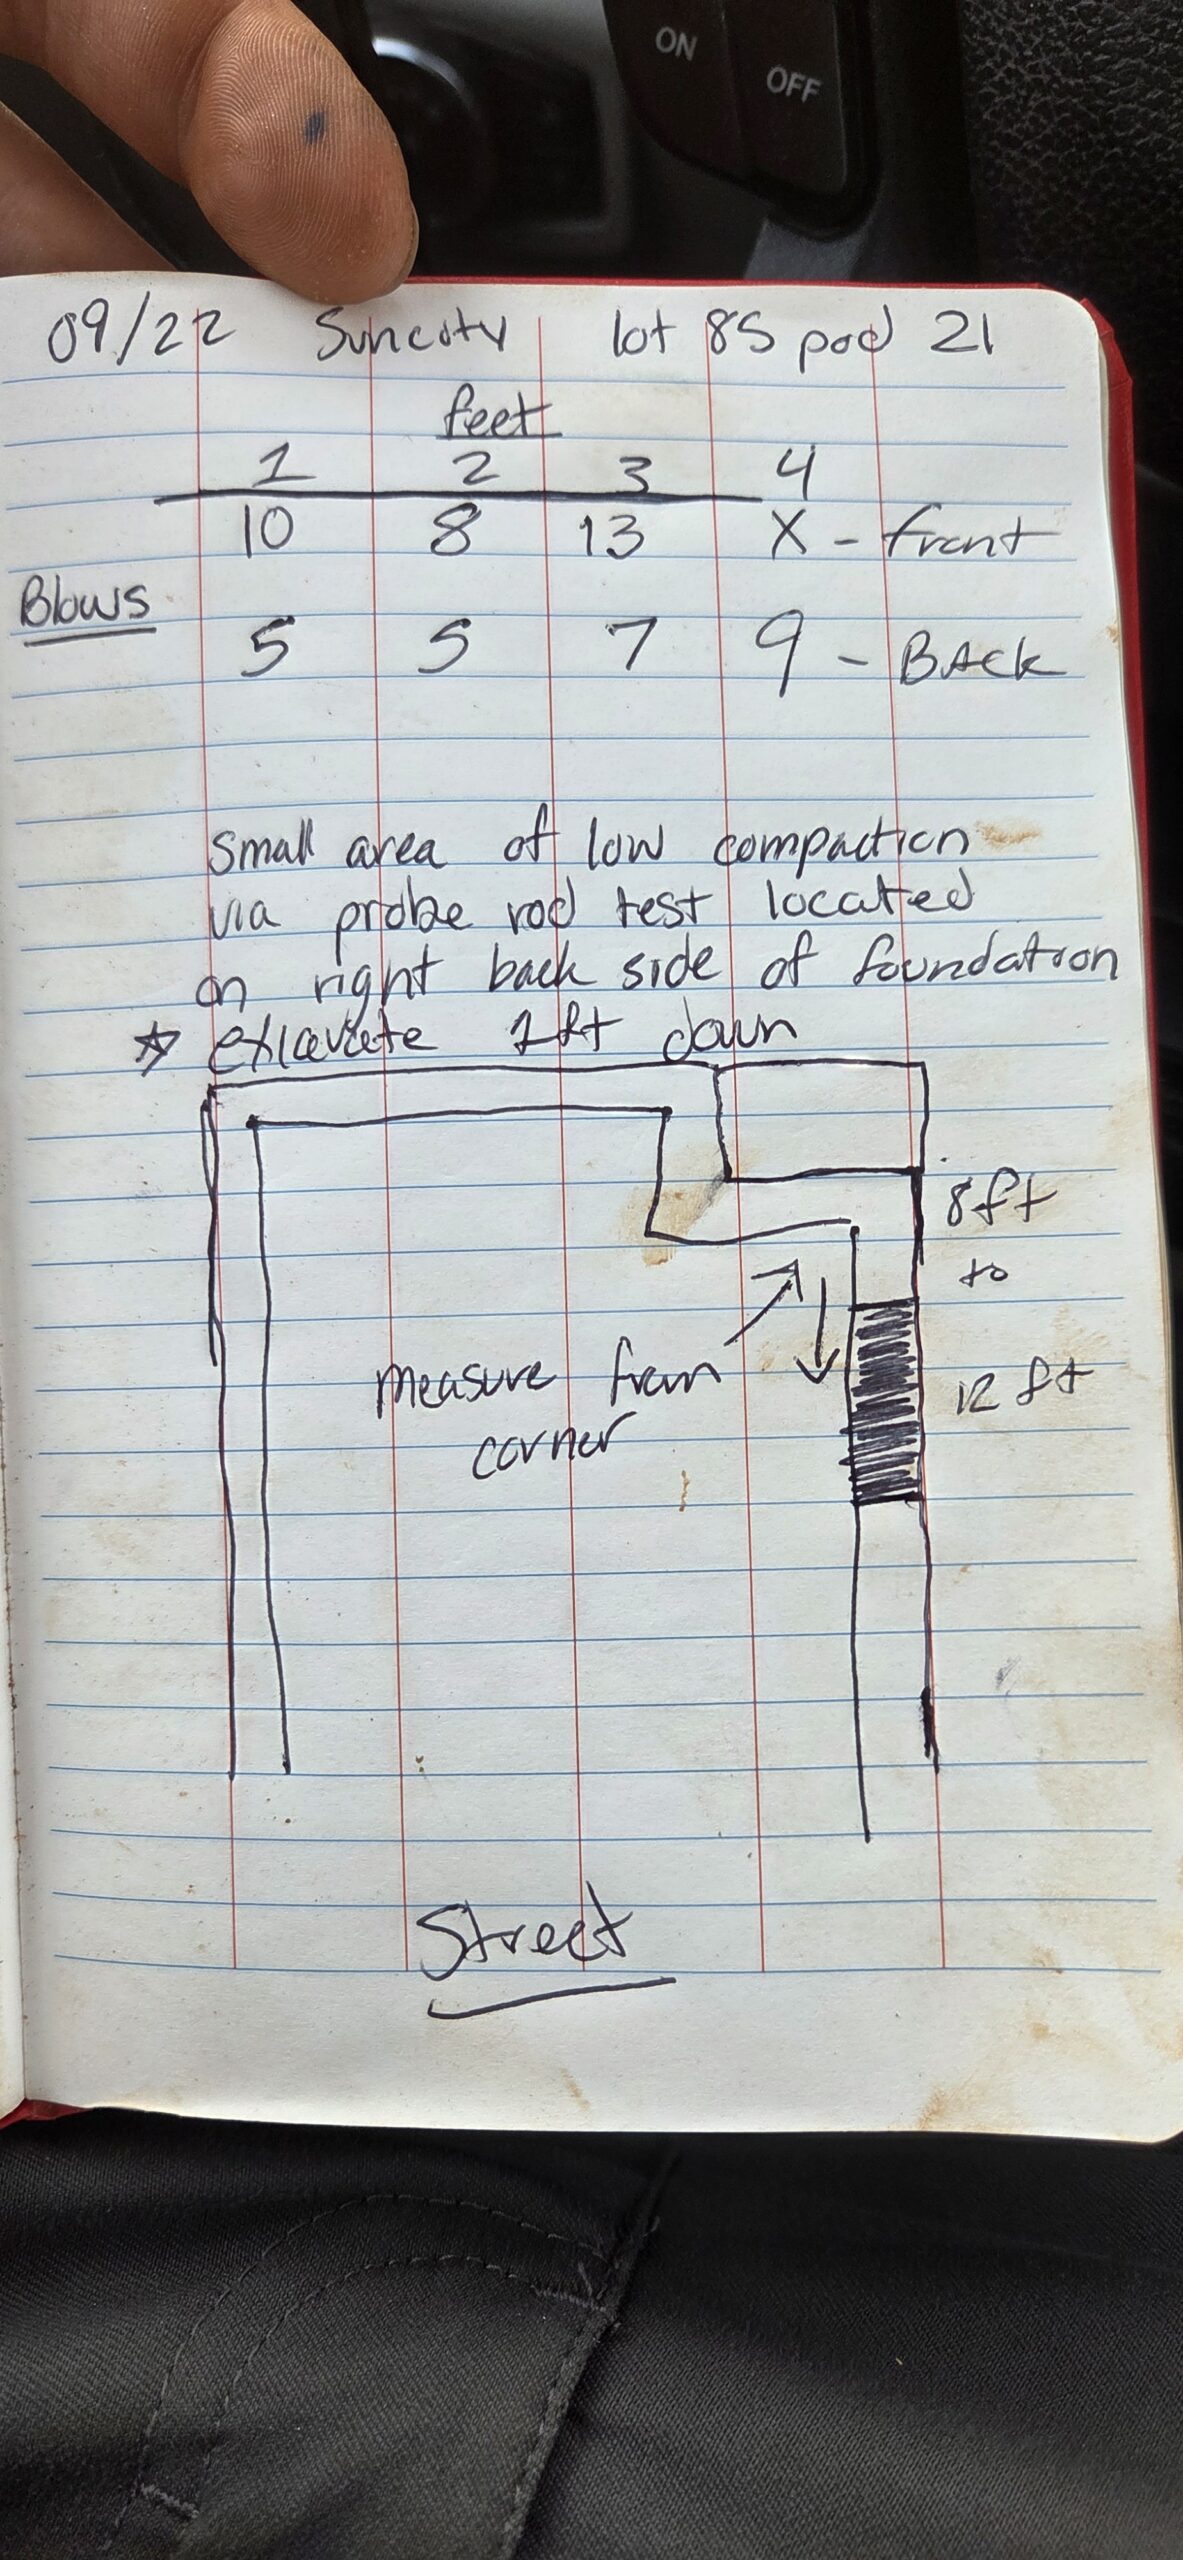 ON
OFF
09/22 Suncity lot 85 pod 21
feet
1 2 3 4
10 8 13 X - front
Blows
5 5 7 9 - BAck
Small area of low compaction
via probe rod test located
on right back side of foundation
☆ excavate 1ft down
8ft
to
12 ft
measure from
corner
Street